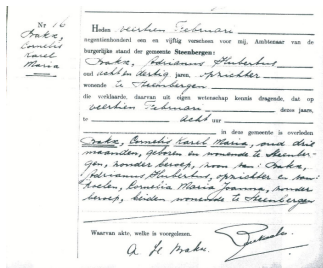 Nr 16
Braks,
Cornelis
Karel
Maria
Heden veertien Februari
negentienhonderd een en vijftig verscheen voor mij, Ambtenaar van de
burgerlijke stand der gemeente Steenbergen:
Braks, Adrianus Huibertus
oud acht en dertig jaren, opzichter
wonende te Steenbergen
die verklaarde, daarvan uit eigen wetenschap kennis dragende, dat op
veertien Februari dezes jaars,
te acht uur
in deze gemeente is overleden
Braks, Cornelis Karel Maria, oud drie
maanden, geboren en wonende te Steenber-
gen, zonder beroep, zoon van: Braks,
Adrianus Huibertus, opzichter en van:
Roelen, Cornelia Maria Joanna, zonder
beroep, beiden wonende te Steenbergen
Waarvan akte, welke is voorgelezen.
A H Braks